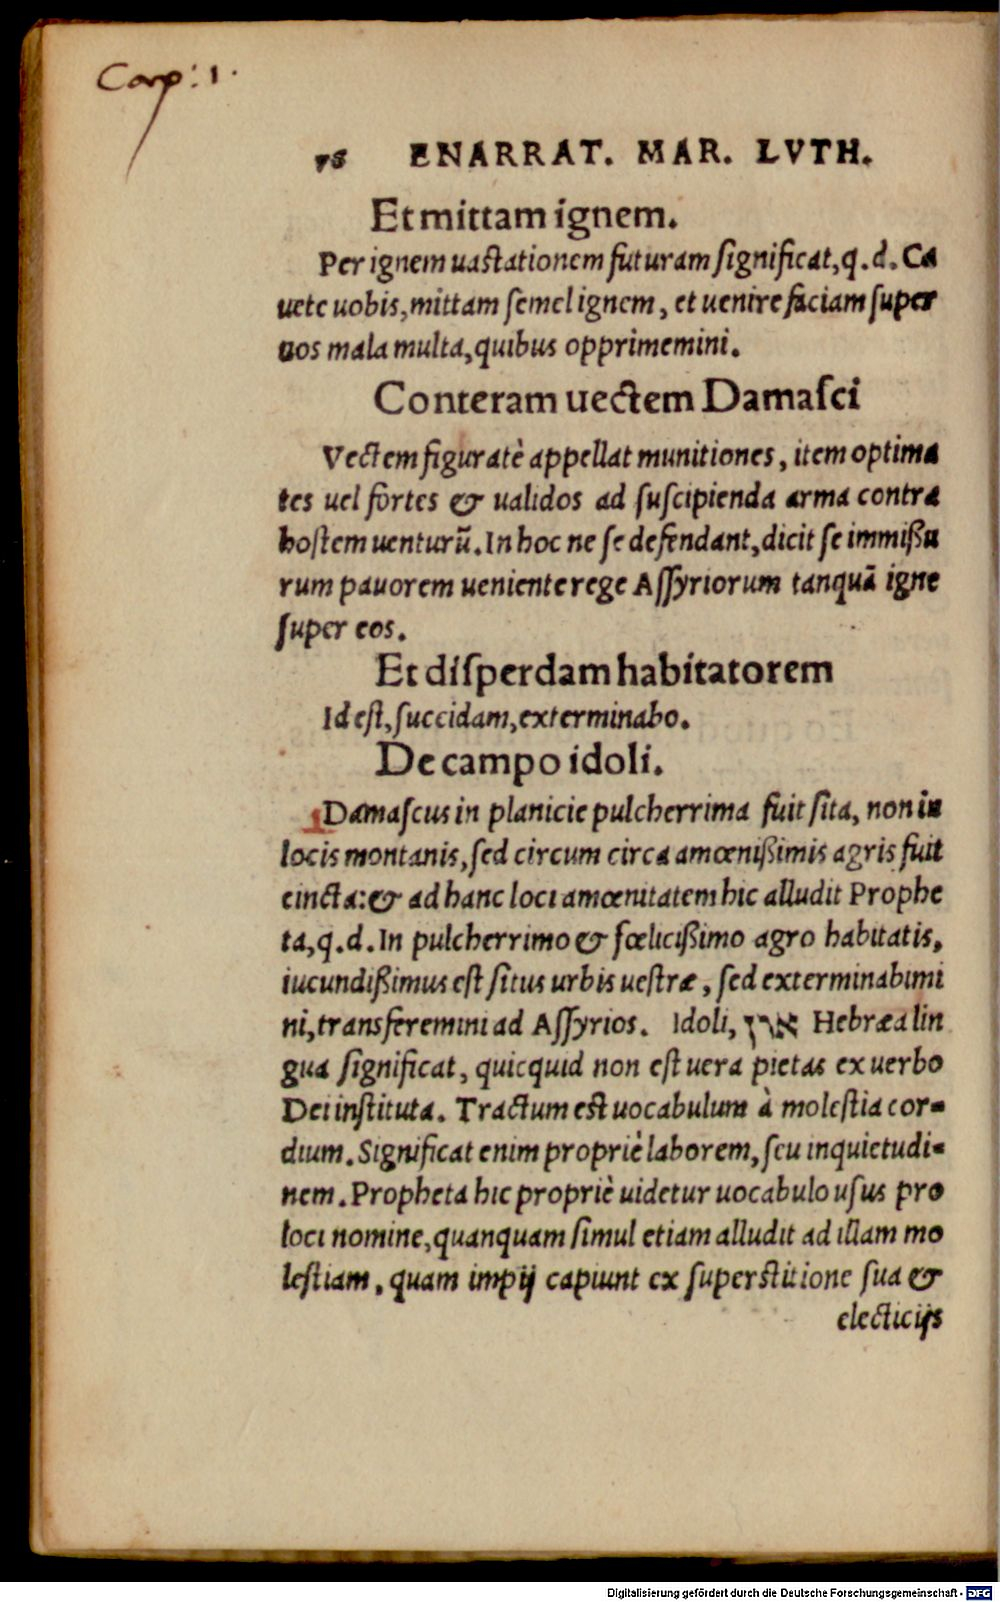 Cap: 1.
76 ENARRAT. MAR. LVTH.
Et mittam ignem.
Per ignem uastationem futuram ſignificat, q. d. Ca
uete uobis, mittam ſemel ignem, et uenire faciam ſuper
uos mala multa, quibus opprimemini.
Conteram uectem Damaſci
Vectem figuratè appellat munitiones, item optima
tes uel fortes & ualidos ad ſuſcipienda arma contra
hoſtem uenturū. In hoc ne ſe defendant, dicit ſe immißu
rum pauorem ueniente rege Aſſyriorum tanquā igne
ſuper eos.
Et diſperdam habitatorem
Id eſt, ſuccidam, exterminabo.
De campo idoli.
Damaſcus in planicie pulcherrima fuit ſita, non in
locis montanis, ſed circum circa amœnißimis agris fuit
cincta: & ad hanc loci amœnitatem hic alludit Prophe
ta, q. d. In pulcherrimo & fœlicißimo agro habitatis,
iucundißimus eſt ſitus urbis ueſtræ, ſed exterminabimi
ni, transferemini ad Aſſyrios. Idoli, ארן Hebræa lin
gua ſignificat, quicquid non eſt uera pietas ex uerbo
Dei inſtituta. Tractum eſt uocabulum à moleſtia cor-
dium. Significat enim propriè laborem, ſeu inquietudi-
nem. Propheta hic propriè uidetur uocabulo uſus pro
loci nomine, quanquam ſimul etiam alludit ad illam mo
leſtiam, quam impij capiunt ex ſuperſtitione ſua &
electicijs
Digitalisierung gefördert durch die Deutsche Forschungsgemeinschaft - DFG